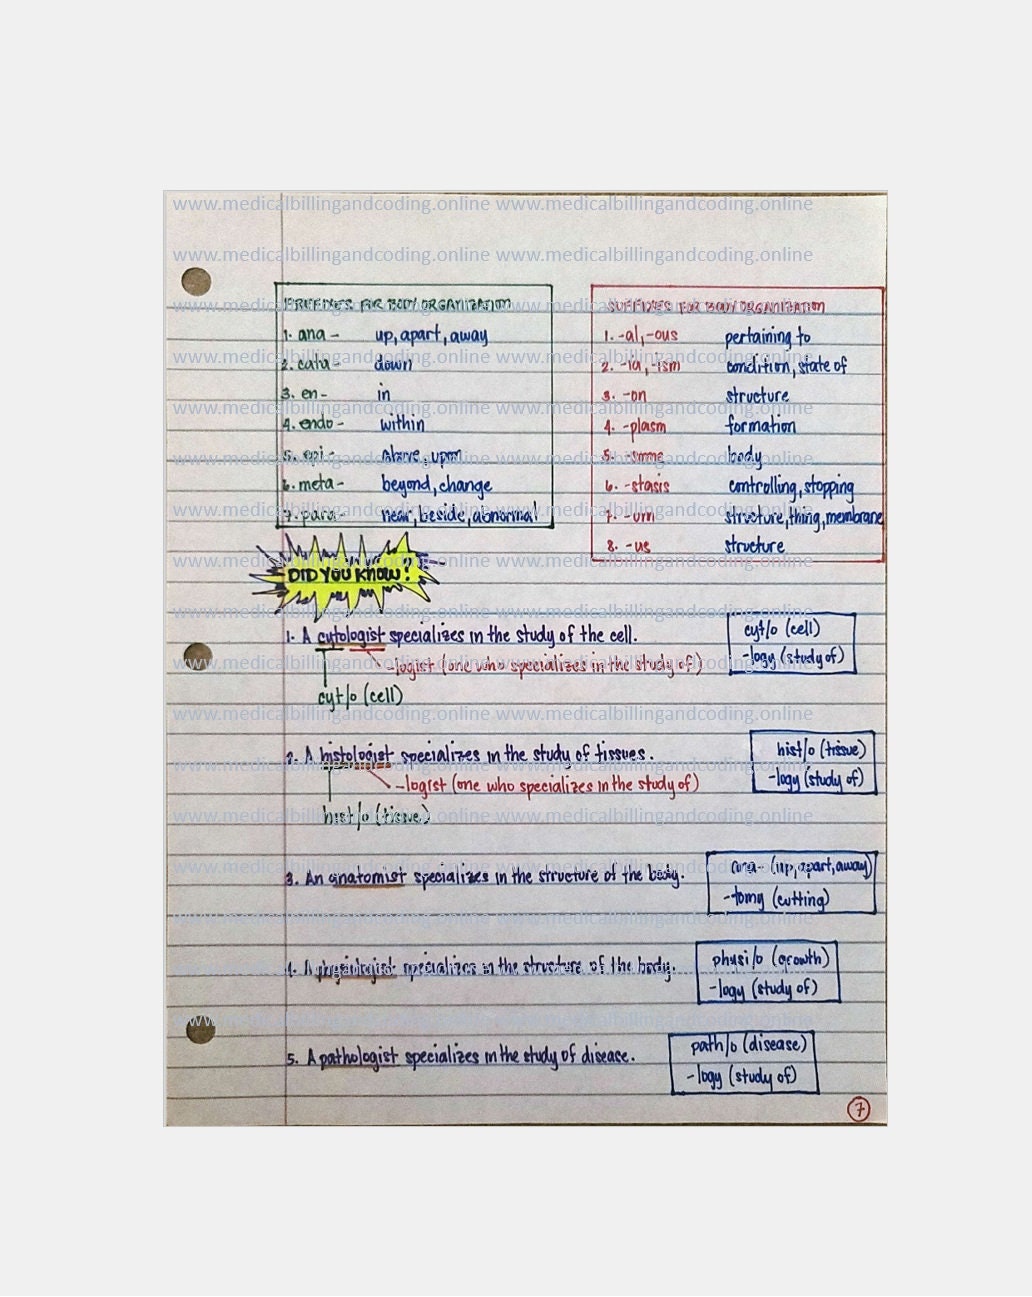 www.medicalbillingandcoding.online www.medicalbillingandcoding.online
www.medicalbillingandcoding.online www.medicalbillingandcoding.online
PREFIXES FOR BODY ORGANIZATION
1. ana- up, apart, away
2. cata- down
3. en- in
4. endo- within
5. epi- above, upon
6. meta- beyond, change
7. para- near, beside, abnormal
SUFFIXES FOR BODY ORGANIZATION
1. -al, -ous pertaining to
2. -ia, -ism condition, state of
3. -on structure
4. -plasm formation
5. -some body
6. -stasis controlling, stopping
7. -um structure, thing, membrane
8. -us structure
DID YOU KNOW?
1. A cytologist specializes in the study of the cell.
-logist (one who specializes in the study of)
cyt/o (cell)
cyt/o (cell)
-logy (study of)
2. A histologist specializes in the study of tissues.
-logist (one who specializes in the study of)
hist/o (tissue)
hist/o (tissue)
-logy (study of)
3. An anatomist specializes in the structure of the body.
ana- (up, apart, away)
-tomy (cutting)
4. A physiologist specializes in the structure of the body.
physi/o (growth)
-logy (study of)
5. A pathologist specializes in the study of disease.
path/o (disease)
-logy (study of)
7